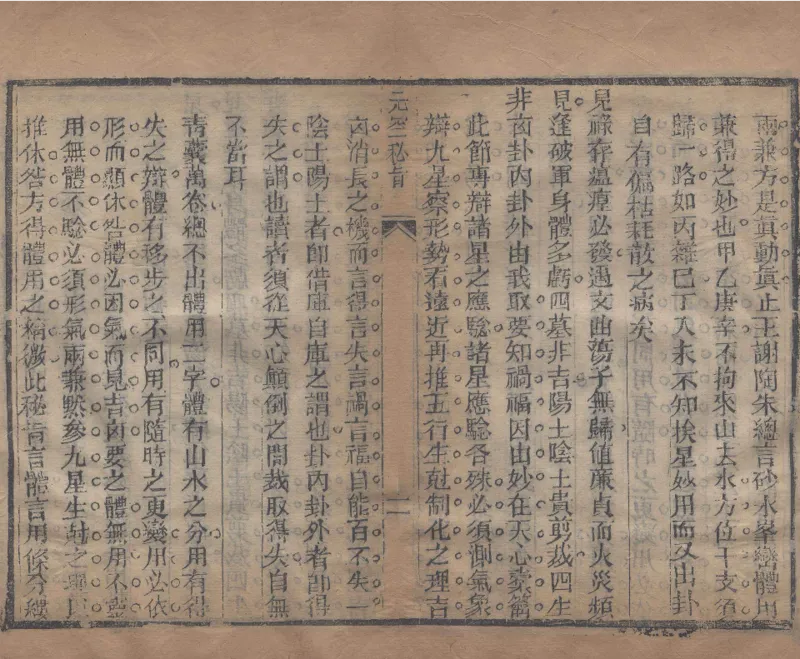 兩兼方是眞動眞止王謝陶朱總言砂水峯巒體用
兼得之妙也甲乙庚辛不拘來山去水方位干支須
歸一路如丙雜巳丁入未不知挨星妙用而又出卦
自有偏枯耗散之病矣
見祿存瘟㾮必發遇文曲蕩子無歸値廉貞而火災頻
見逢破軍身體多虧四墓非吉陽土陰土貴剪裁四生
非凶卦內卦外由我取要知禍福因由妙在天心橐籥
此節專辯諸星之應驗諸星應驗各殊必須測氣象
辯九星察形勢看遠近再推五行生尅制化之理吉
元空秘旨
二
凶消長之機而言得言失言禍言福自能百不失一
陰土陽土者卽借庫自庫之謂也卦內卦外者卽得
失之謂也讀者須從天心顚倒之間裁取得失自無
不當耳
靑囊萬卷總不出體用二字體有山水之分用有得
失之辯體有移步之不同用有隨時之更變用必依
形而顯休咎體必因氣而見吉凶要之體無用不靈
用無體不驗必須形氣兩兼黙參九星生尅之理
推休咎方得體用之精微此秘旨言體言用條分縷